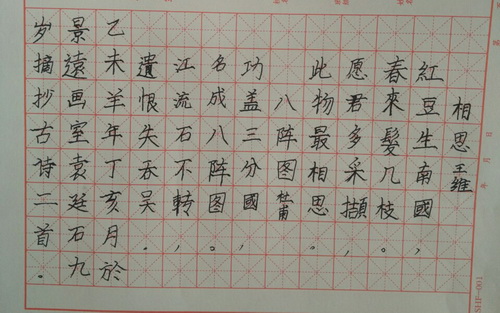 相思 王维
紅豆生南國，
春來髮几枝。
愿君多采擷，
此物最相思。
八阵图 杜甫
功盖三分國，
名成八阵图。
江流石不轉，
遺恨失吞吴。
乙未羊年丁亥月於
景遠画室袁廷石九
岁摘抄古诗二首。
年 月 日